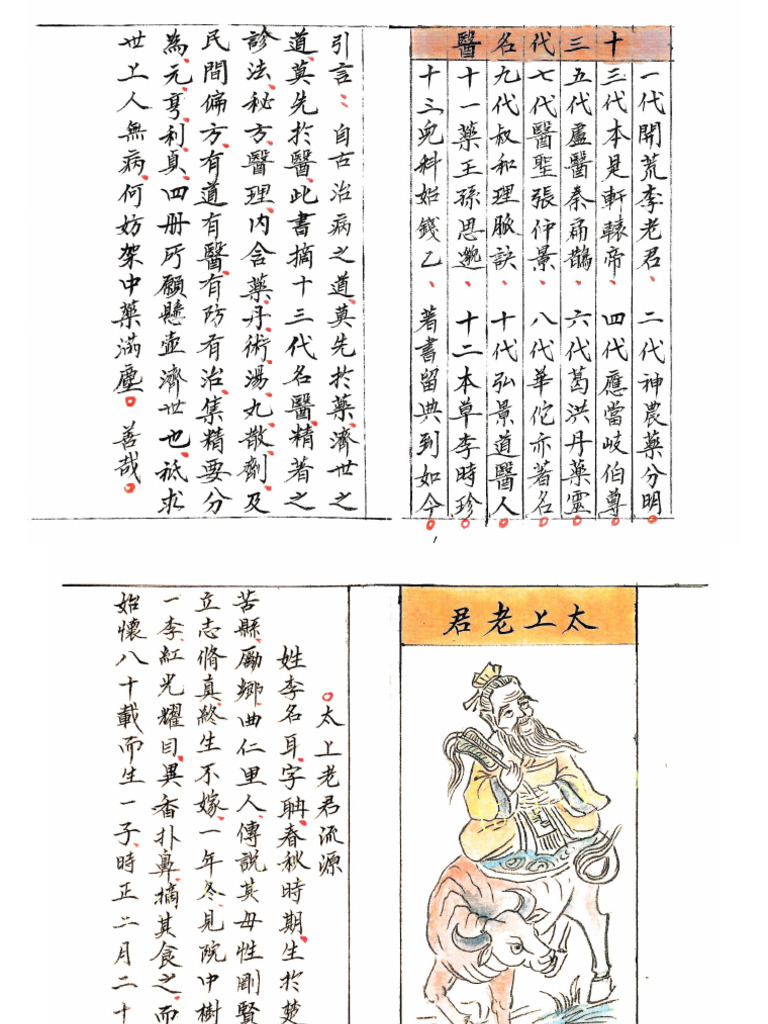 十三代名醫
一代開荒李老君、二代神農藥分明。
三代本是軒轅帝、四代應當岐伯尊。
五代盧醫秦扁鵲、六代葛洪丹藥靈。
七代醫聖張仲景、八代華佗亦著名。
九代叔和理脈訣、十代弘景道醫人。
十一藥王孫思邈、十二本草李時珍。
十三兒科始錢乙、著書留典到如今。
引言：自古治病之道、莫先於藥、濟世之
道、莫先於醫、此書摘十三代名醫、精著之
診法、秘方、醫理、內含藥、丹術、湯、丸、散、劑、及
民間偏方、有道有醫、有防有治、集精要分
為、元、亨、利、貞、四册所願懸壺濟世也、祗求
世上人無病、何妨架中藥滿塵。善哉。
太上老君
。太上老君流源
姓李名耳、字聃、春秋時期、生於楚
苦縣、勵鄉、曲仁里人、傳說其母性剛賢
立志脩真、終生不嫁、一年冬、見院中樹
一李、紅光耀目、異香扑鼻、摘其食之、而
始懷八十載而生一子、時正二月二十